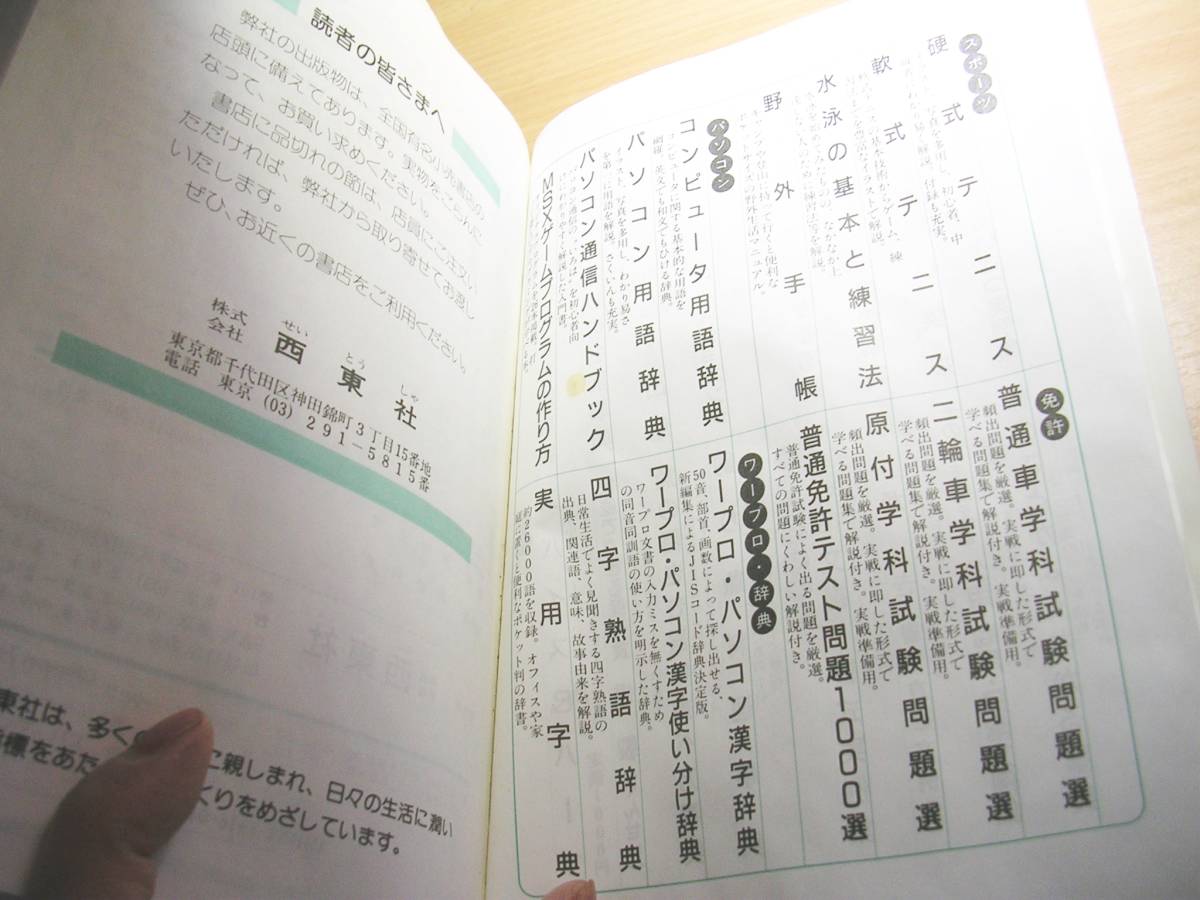 読者の皆さまへ
弊社の出版物は、全国有名小売書店の
店頭に備えてあります。実物をごらんに
なって、お買い求めください。
書店に品切れの節は、店員にご注文い
ただければ、弊社から取り寄せてお渡し
いたします。
ぜひ、お近くの書店をご利用ください。
株式会社 西東社
せいとうしゃ
東京都千代田区神田錦町3丁目15番地
電話 東京(03)291-5815番
東社は、多く
に親しまれ、日々の生活に潤い
指標をあた
くりをめざしています。
スポーツ
硬式テニス
写真を多用し、初心者、中
付録も充実。
軟式テニス
水泳の基本と練習法
なかなか上
練習法等を解説。
野外手帳
キャンプや登山に持って行くと便利な
ポケットサイズの野外生活マニュアル。
パソコン
コンピュータ用語辞典
コンピュータに関する基本的な用語を
網羅。英文でも和文でもひける辞典。
パソコン用語辞典
イラスト、写真を多用し、わかり易さ
を第一に用語を解説。さくいんも充実。
パソコン通信ハンドブック
MSXゲームプログラムの作り方
免許
普通車学科試験問題選
頻出問題を厳選。実戦に即した形式で
学べる問題集で解説付き。実戦準備用。
二輪車学科試験問題選
頻出問題を厳選。実戦に即した形式で
学べる問題集で解説付き。実戦準備用。
原付学科試験問題選
頻出問題を厳選。実戦に即した形式で
学べる問題集で解説付き。実戦準備用。
普通免許テスト問題1000選
普通免許試験によく出る問題を厳選。
すべての問題にくわしい解説付き。
ワープロ・辞典
ワープロ・パソコン漢字辞典
50音、部首、画数によって探し出せる、
新編集によるJISコード辞典決定版。
ワープロ・パソコン漢字使い分け辞典
ワープロ文書の入力ミスを無くすため
の同音同訓語の使い方を明示した辞典。
四字熟語辞典
日常生活でよく見聞きする四字熟語の
出典、関連語、意味、故事由来を解説。
実用字典
約26000語を収録。オフィスや家
庭に置くと便利なポケット判の辞書。